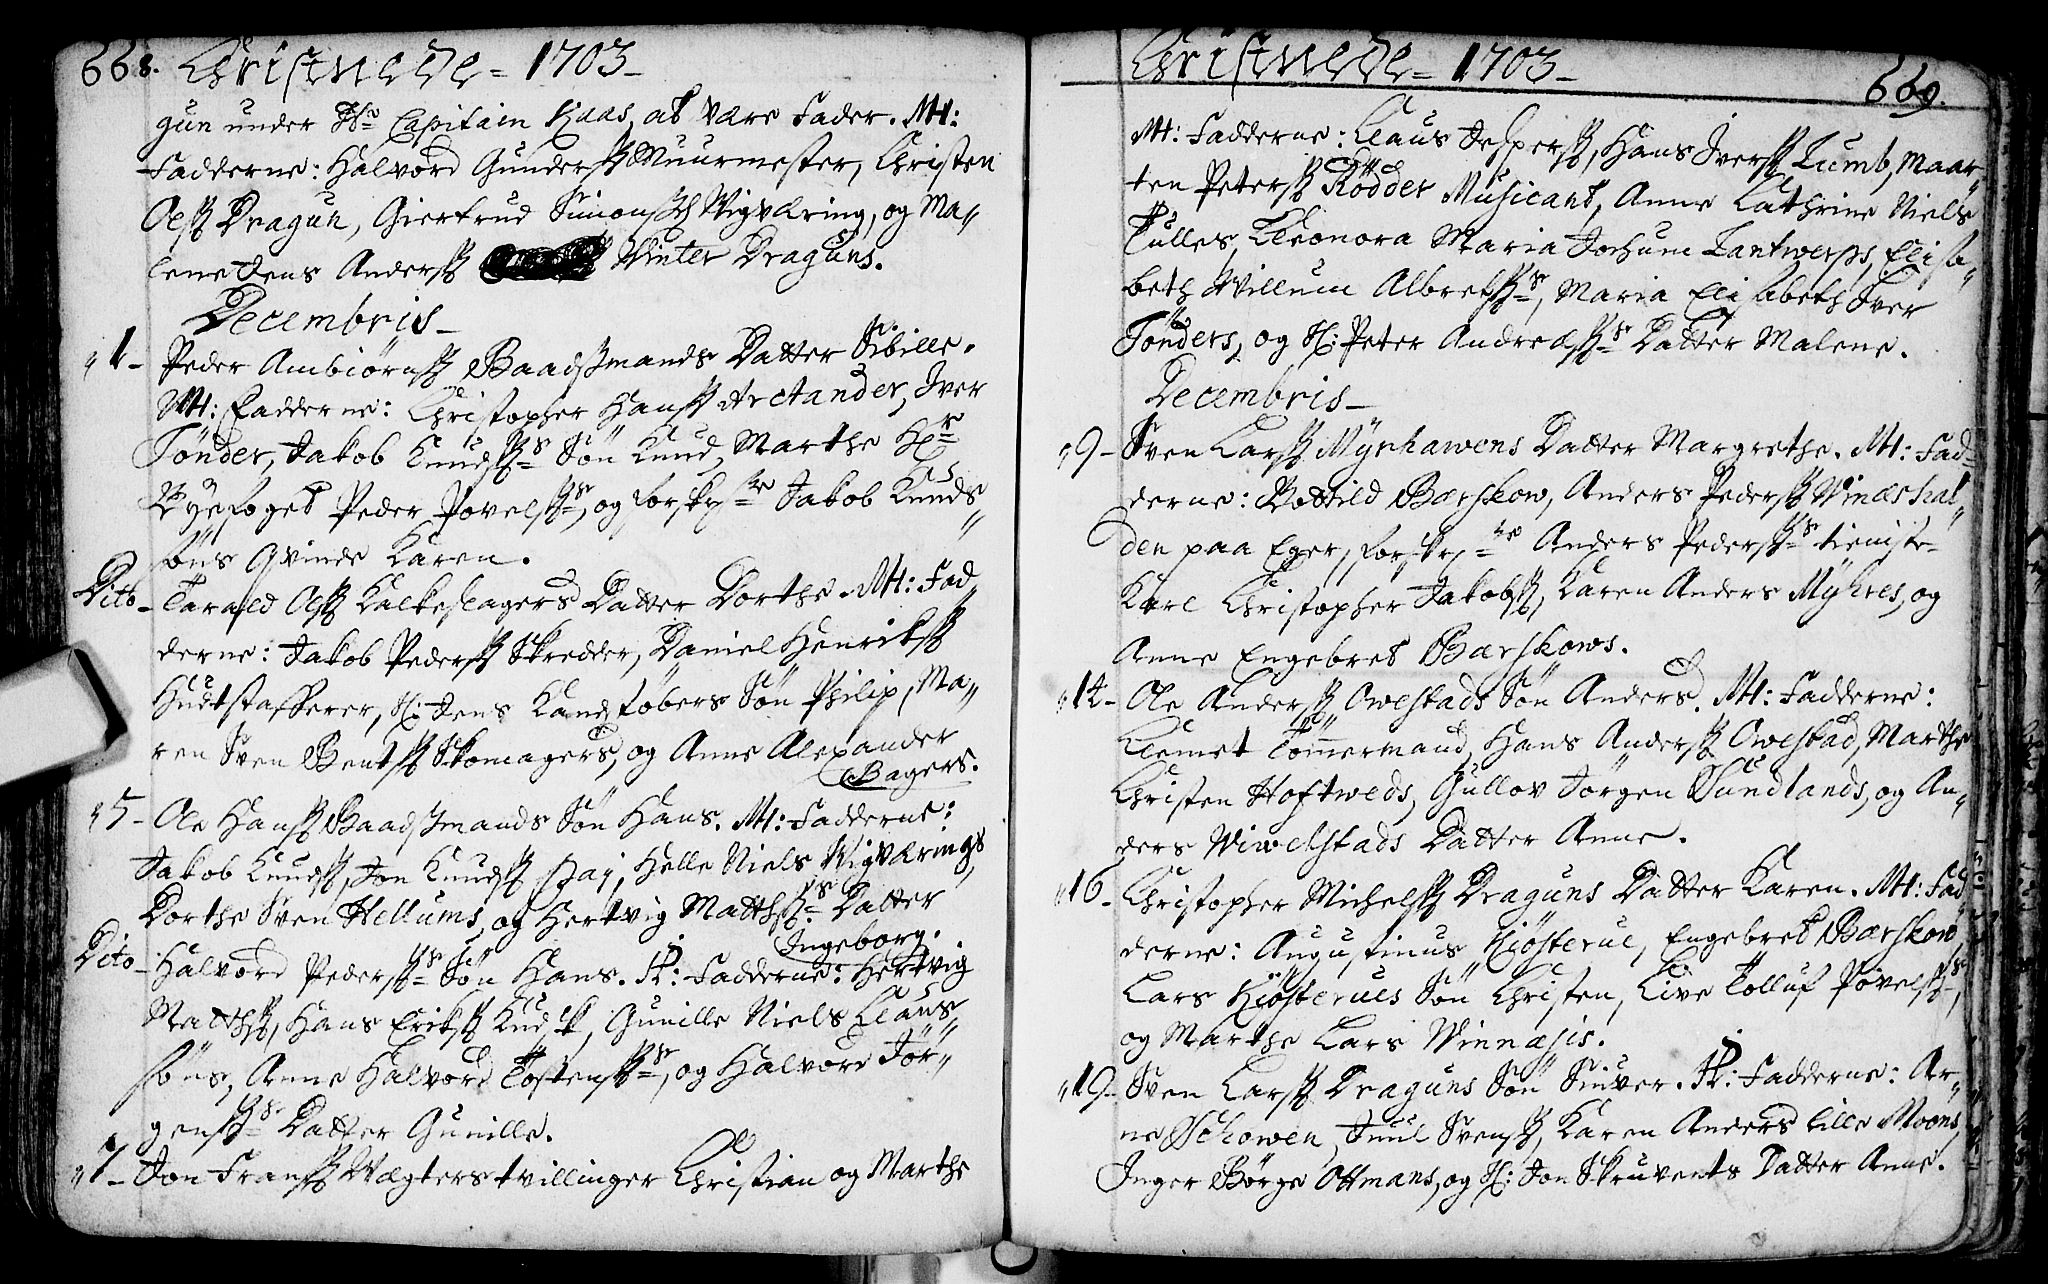 668. Christnede = 1703 -
gun under Hr Capitain Kaas, at være Fader. M:
Fadderne: Halvord Gundersß Muurmester, Christen
Olsß Dragun, Giertrud Simonsßes Wigværing, og Ma„
lene Jens Andersß Winter Draguns.
Decembris -
„ 1 - Peder Ambiörnsß Baadßmands Datter Sibille.
M: Fadderne: Christopher Hansß Arctander, Iver
Tönder, Jakob Knudsßs Sön Knud, Marthe
Byefoget Peder Povelsßs, og forskrne Jakob Knuds„
söns Qvinde Karen.
Dito - Tarald Olsß Kalkeslagers Datter Dorthe. M: Fad„
derne: Jakob Pedersß Skredder, Daniel Henriksß
Hudtstafferer, H: Jens Kandstöbers Sön Philip, Ma„
ren Sven Bentsß Skomagers, og Anne Alexander
Bagers.
„ 5 - Ole Hansß Baadßmands Sön Hans. M: Fadderne:
Jakob Knudsß, Jon Knudsß Haj, Helle Niels Wigværings,
Dorthe Sven Hellums, og Hertvig Matthsßs Datter
Ingeborg.
Dito - Halvord Pedersßs Sön Hans. H: Fadderne: Hertvig
Matthsß, Hans Eriksß Kudsk, Gunille Niels Claus„
söns, Anne Halvord Tostensßs, og Halvord Jör„
gensßs Datter Gunille.
„ 7 - Jon Fransß Wægters tvillinger Christian og Marthe
Christnede = 1703 -
669.
M: Fadderne: Claus Jespersß, Hans Iversß Lumb, Maar„
ten Petersß Rödder Musicant, Anne Cathrine Niels
Tulles, Eleonora Maria Jochum Lantwerps, Elisa„
beth Willum Albretsßs, Maria Elisabeth Iver
Tönders, og H: Peter Andreæsßs Datter Malene.
Decembris -
„ 9 - Sven Larsß Myrhawens Datter Margrethe. M: Fad„
derne: Bottild Bærskow, Anders Pedersß Winæs hal„
den paa Eger, forskrne Anders Pedersßs tieniste-
Karl Christopher Jakobsß, Karen Anders Myhres, og
Anne Engebret Bærskows.
„ 14 - Ole Andersß Owestads Sön Anders. M: Fadderne:
Klemet Tömmermand, Hans Andersß Owestad, Marthe
Christen Hoftweds, Gullov Jörgen Sundlands, og An„
ders Wiwelstads Datter Anne.
„ 16 - Christopher Michelsß Draguns Datter Karen. M: Fad„
derne: Augustinus Kiösterue, Engebret Bærskow,
Lars Kiösterues Sön Christen, Live Tolluf Povelsßs,
og Marthe Lars Winnæsis.
„ 19 - Sven Larsß Draguns Sön Siuver. H: Fadderne: Ar„
ne Schowen, Juul Svensß, Karen Anders lille Moens,
Inger Börge Ottmans, og H: Jon Skruvents Datter Anne.